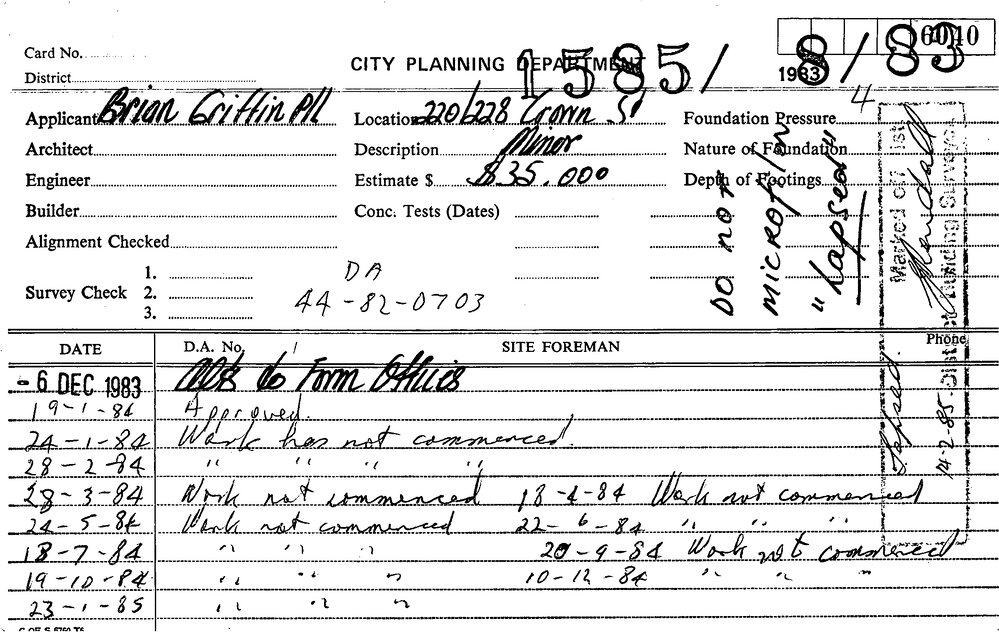 6040
Card No.
CITY PLANNING DEPARTMENT 1585/ 8/83
District
1983
4
Applicant Brian Griffin P/L Location 220/228 Crown St Foundation Pressure
Architect Description Minor Nature of Foundation
Engineer Estimate $ $35.000 Depth of Footings
Builder Conc. Tests (Dates)
Alignment Checked
Survey Check 1.
2.
3.
DA
44-82-0703
DO NOT
MICROFILM
"Lapsed"
Marked off list
District Building Surveyor
Lapsed.
14-2-85
DATE D.A. No. SITE FOREMAN Phone
- 6 DEC 1983 Alts to Form Offices
19-1-84 Approved.
24-1-84 Work has not commenced
28-2-84 " " " "
28-3-84 Work not commenced 18-4-84 Work not commenced
24-5-84 Work not commenced 22-6-84 " " "
18-7-84 " " " 20-9-84 Work not commenced
19-10-84 " " " 10-12-84 " " "
23-1-85 " " "
C OF S 5760 T6